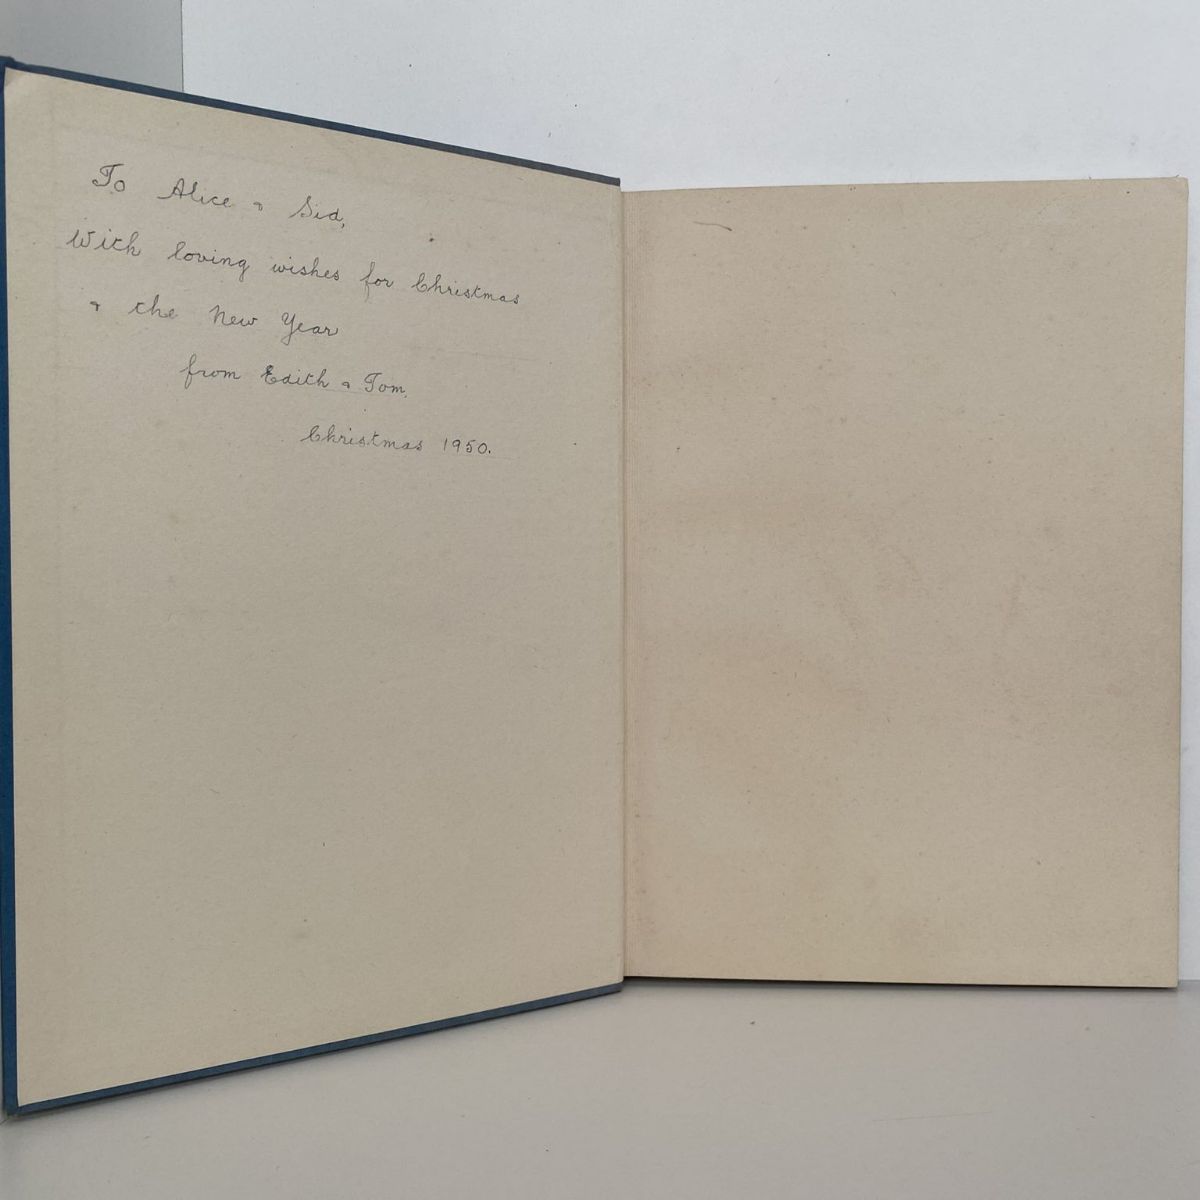 To Alice & Sid,
With loving wishes for Christmas
& the New Year
from Edith & Tom.
Christmas 1950.